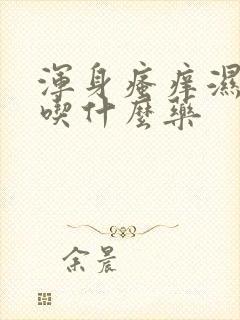 渾身瘙癢濕
喫什麼藥
余晨